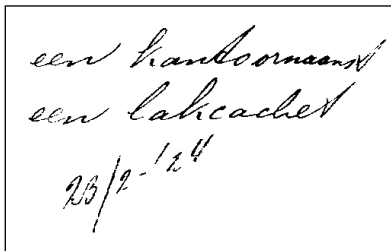 een kantoornaanst
een lakcachet
23/2-'24